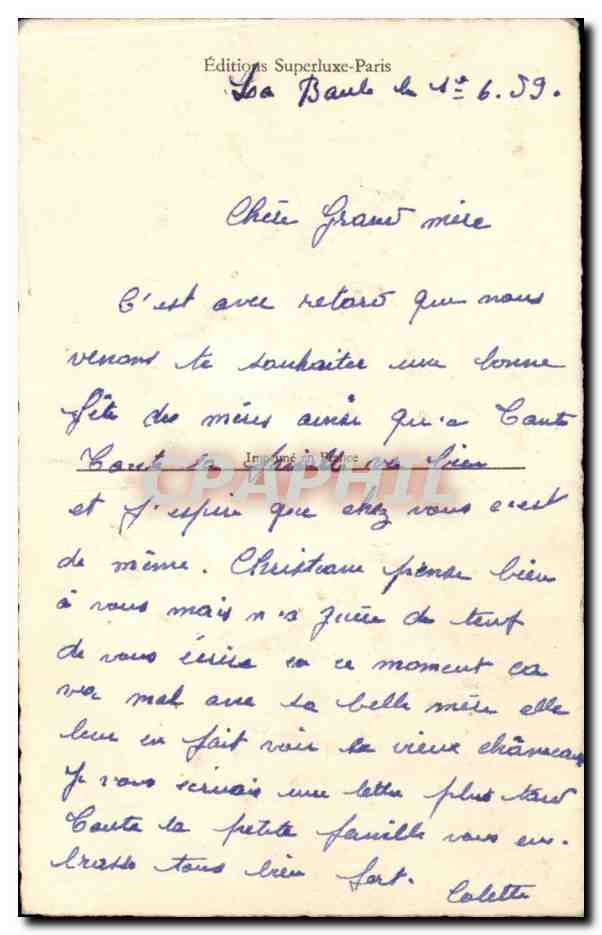 Éditions Superluxe-Paris
La Baule le 1er 6.59.
Chère Grand mère
C'est avec retard que nous
venons te souhaiter une bonne
fête des mères ainsi qu'a Tante
Toute la famille va bien
Imprimé en France
CPAPHIL
et j'espère que chez vous c'est
de même. Christiane pense bien
à vous mais n'a guère de temps
de vous écrire en ce moment ça
va mal avec sa belle mère elle
leur en fait voir le vieux
Je vous écrirais une lettre plus tard
Toute la petite famille vous em-
brasse tous bien fort.
Colette